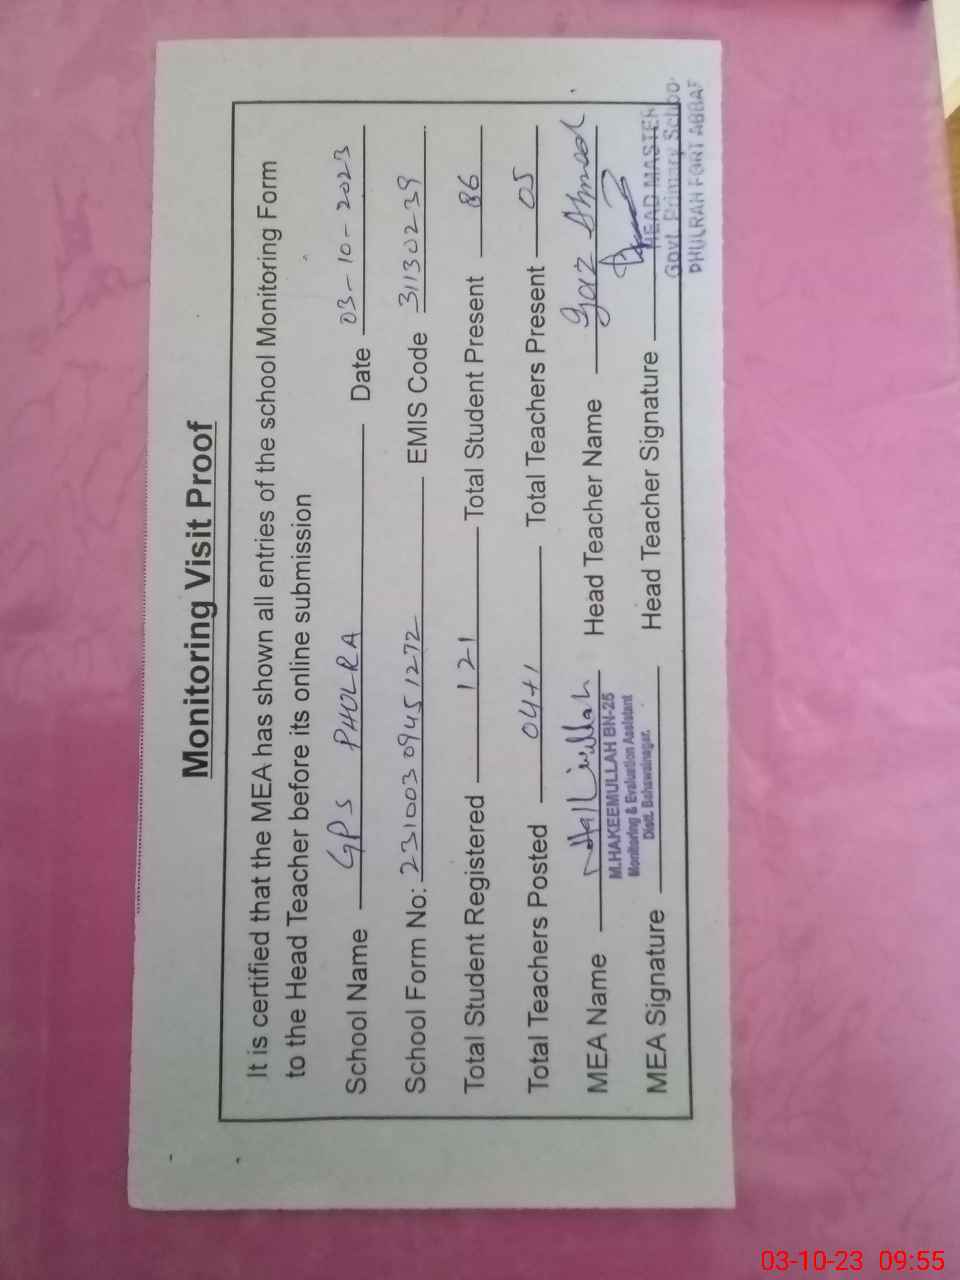 Monitoring Visit Proof
It is certified that the MEA has shown all entries of the school Monitoring Form
to the Head Teacher before its online submission
School Name GPS PHULRA Date 03-10-2023
School Form No: 23100309451272 EMIS Code 31130239
Total Student Registered 121 Total Student Present 86
Total Teachers Posted 04+1 Total Teachers Present 05
MEA Name Head Teacher Name Ahmed
M.HAKEEMULLAH BN-25
Monitoring & Evaluation Assistant
Distt. Bahawalnagar.
MEA Signature Head Teacher Signature
HEAD MASTER
Govt. Primary School
PHULRAH FORT ABBAS
03-10-23 09:55